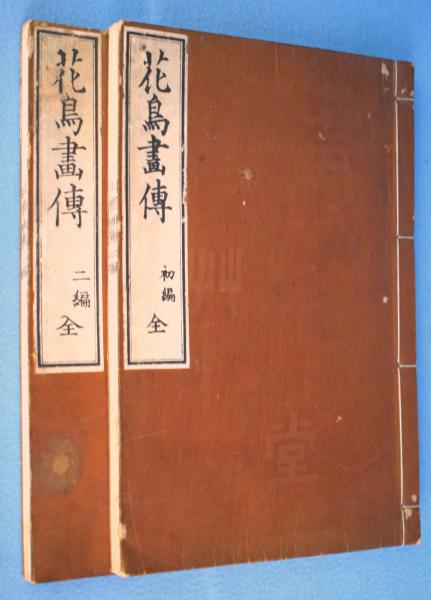 花鳥畫傳
初編
全
花鳥畫傳
二編
全
堂